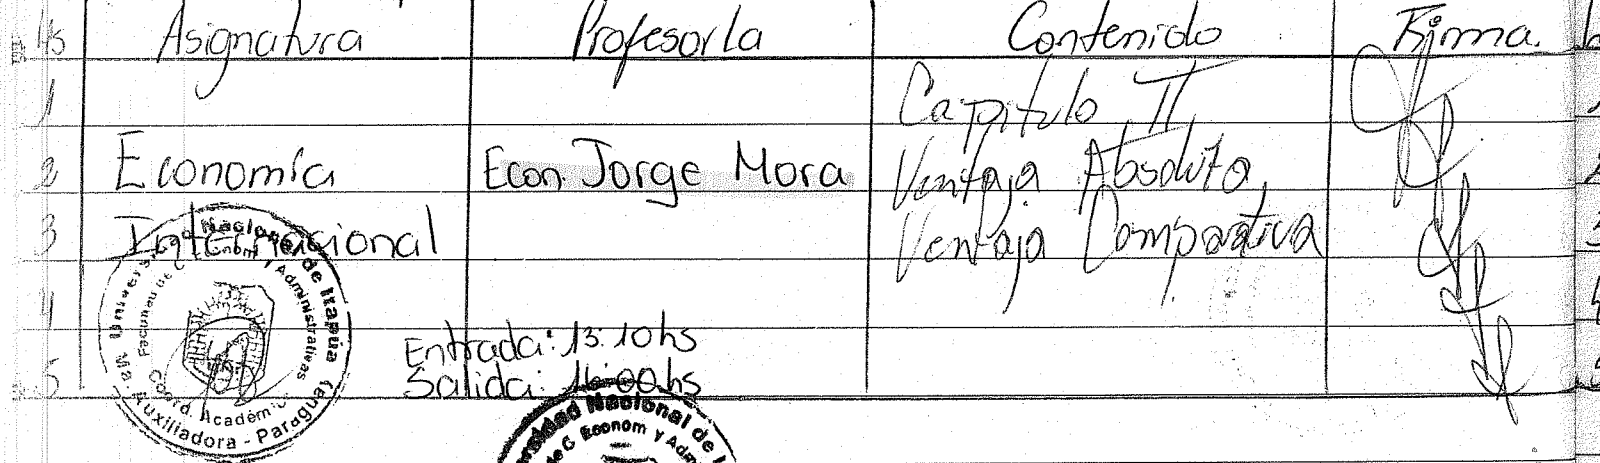 Hs Asignatura Profesor/a Contenido Firma.
1 Capitulo II
2 Economía Econ. Jorge Mora Ventaja Absoluta,
3 Internacional Ventaja Comparativa
4
Entrada: 13:10hs
5 Salida: 16:00hs
Universidad Nacional de Itapúa
Facultad de C. Econom y Administrativas
Coord. Académic
Ma. Auxiliadora - Paraguay
sidad Nacional de I
de C Econom y Adm